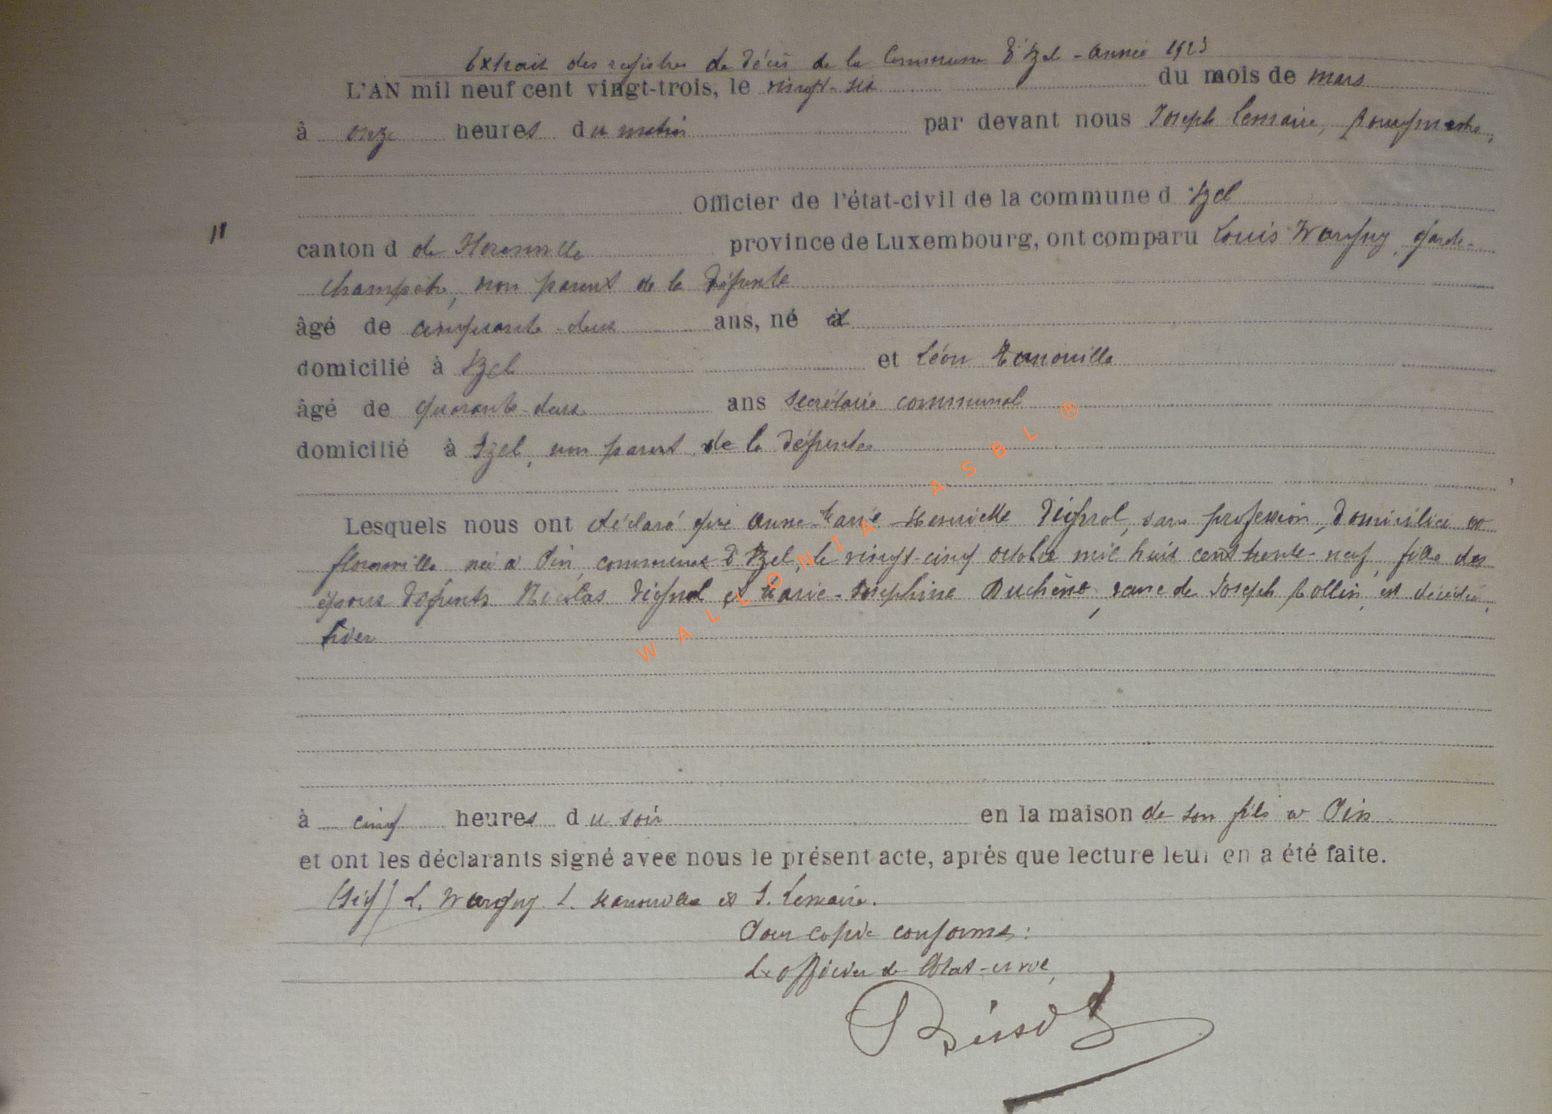 Extrait des registres de décès de la Commune d'Izel - Année 1923
L'AN mil neuf cent vingt-trois, le vingt-six du mois de mars
à onze heures du matin par devant nous Joseph Lemaire, Bourgmestre,
Officier de l'état-civil de la commune d Izel
11
canton d de Florenville province de Luxembourg, ont comparu Louis Wargny, garde-
champêtre, non parent de la défunte
âgé de cinquante-deux ans, né à
domicilié à Izel et Léon
âgé de quarante-deux ans secrétaire communal
domicilié à Izel, non parent de la défunte
Lesquels nous ont déclaré que Anne-Marie Henriette Dignol, sans profession, domiciliée à
Florenville née à Pin, commune d'Izel, le vingt-cinq octobre mil huit cent trente-neuf, fille des
époux défunts Nicolas Dignol et Marie-Josephine Duchêne, veuve de Joseph Collin, est décédée
hier
à cinq heures du soir en la maison de son fils à Pin
et ont les déclarants signé avec nous le présent acte, après que lecture leur en a été faite.
(Sig) L. Wargny L. et J. Lemaire.
Pour copie conforme:
L'officier de l'Etat-civil,
WALLONIA ASBL ®